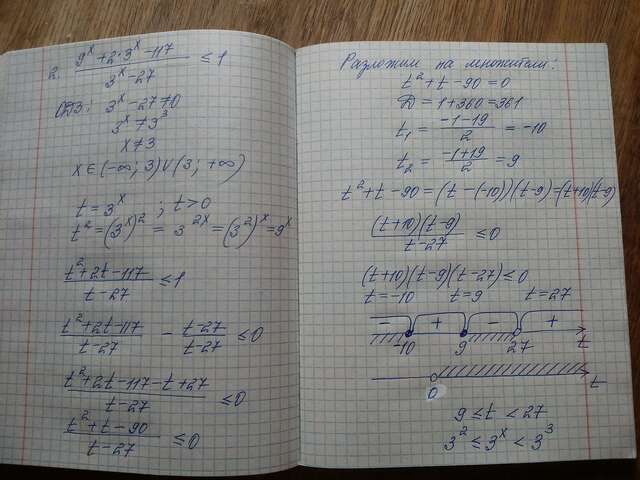 2. (9^x + 2·3^x − 117)/(3^x − 27) ≤ 1
ОДЗ: 3^x − 27 ≠ 0
3^x ≠ 3^3
x ≠ 3
x ∈ (−∞; 3) ∪ (3; +∞)
t = 3^x ; t > 0
t^2 = (3^x)^2 = 3^{2x} = (3^2)^x = 9^x
(t^2 + 2t − 117)/(t − 27) ≤ 1
(t^2 + 2t − 117)/(t − 27) − (t − 27)/(t − 27) ≤ 0
(t^2 + 2t − 117 − t + 27)/(t − 27) ≤ 0
(t^2 + t − 90)/(t − 27) ≤ 0
Разложим на множители:
t^2 + t − 90 = 0
D = 1 + 360 = 361
t_1 = (−1 − 19)/2 = −10
t_2 = (−1 + 19)/2 = 9
t^2 + t − 90 = (t − (−10))(t − 9) = (t + 10)(t − 9)
((t + 10)(t − 9))/(t − 27) ≤ 0
(t + 10)(t − 9)(t − 27) ≤ 0
t = −10 t = 9 t = 27
− + − +
−10 9 27 t
0 t
9 ≤ t < 27
3^2 ≤ 3^x < 3^3